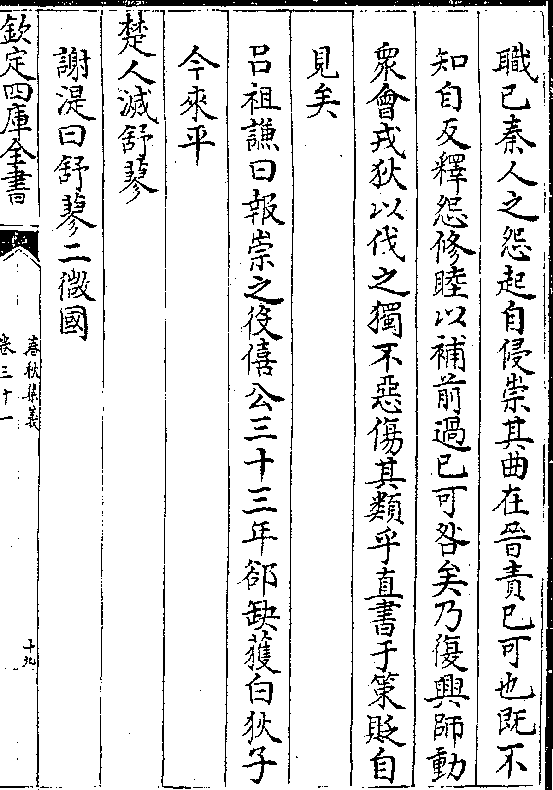 職已秦人之怨起自侵崇其曲在晉責已可也既不
知自反釋怨修睦以補前過已可咎矣乃復興師動
衆會戎狄以伐之獨不惡傷其類乎直書于策貶自
見矣
吕祖謙曰報崇之役僖公三十三年郤缺獲白狄子
今來平
楚人滅舒蓼
謝湜曰舒蓼二微國
欽定四庫全書
春秋集義
卷三十一
十九